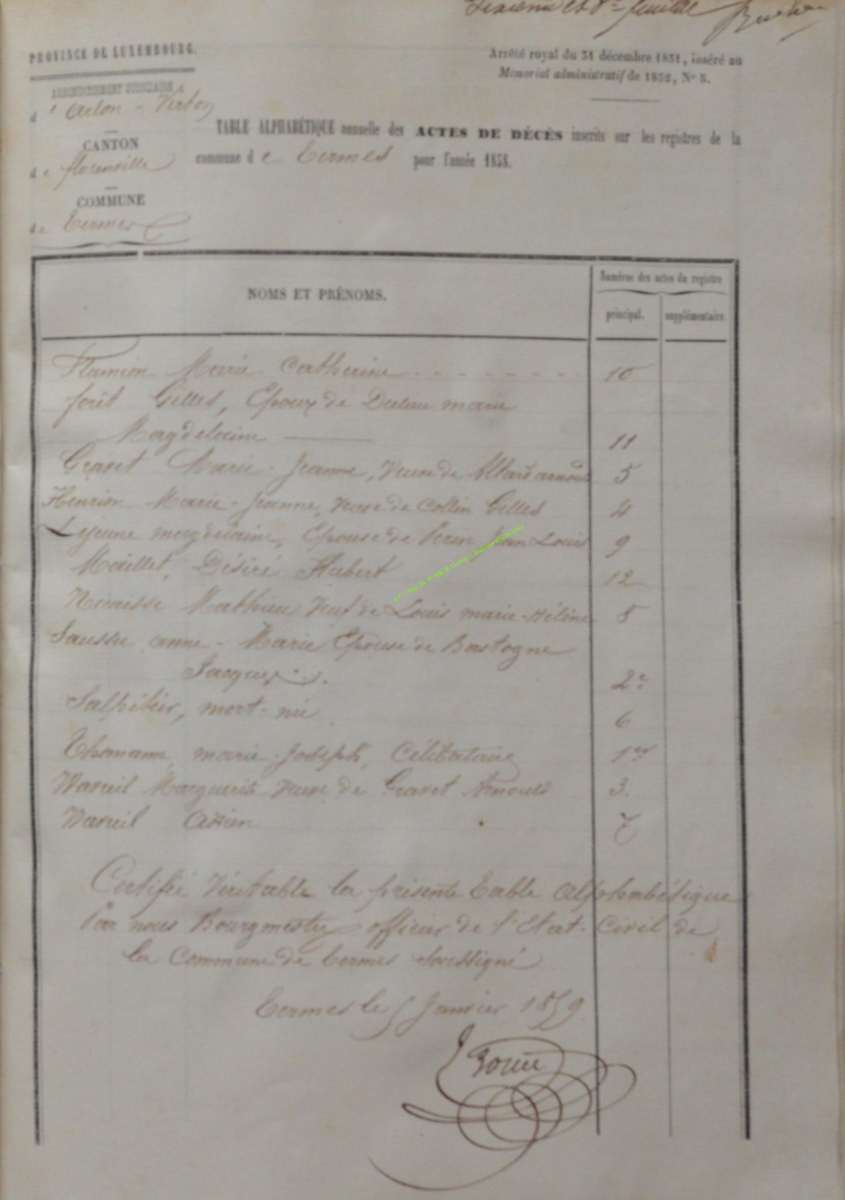 feuille
PROVINCE DE LUXEMBOURG.
Arrêté royal du 31 décembre 1831, inséré au
Mémorial administratif de 1832, N° 5.
ARRONDISSEMENT JUDICIAIRE
d'Arlon - Virton
CANTON
de florenville
COMMUNE
de Termes
TABLE ALPHABÉTIQUE annuelle des ACTES DE DÉCÈS inscrits sur les registres de la
commune de Termes pour l'année 1858.
NOMS ET PRÉNOMS.
Numéros des actes du registre
principal. supplémentaire.
Marie Catherine 10
forêt Gilles, Epoux de marie
Magdelaine 11
Gravet Marie-Jeanne, Veuve de 5
Henrion Marie-Jeanne, Veuve de Collin Gilles 4
Lejeune magdelaine, Epouse de Jean Louis 9
Maillet, Désiré Hubert 12
Mathieu Veuf de Louis marie-Hélène 8
anne-Marie Epouse de Bastogne
Jacques 2
mort-né 6
marie-Joseph, Célibataire 1er
Marguerite Veuve de Gravet 3.
7
Certifié Véritable la présente Table Alphabétique
Par nous Bourgmestre officier de l'Etat-Civil de
la Commune de Termes Soussigné
Termes le 5 Janvier 1859